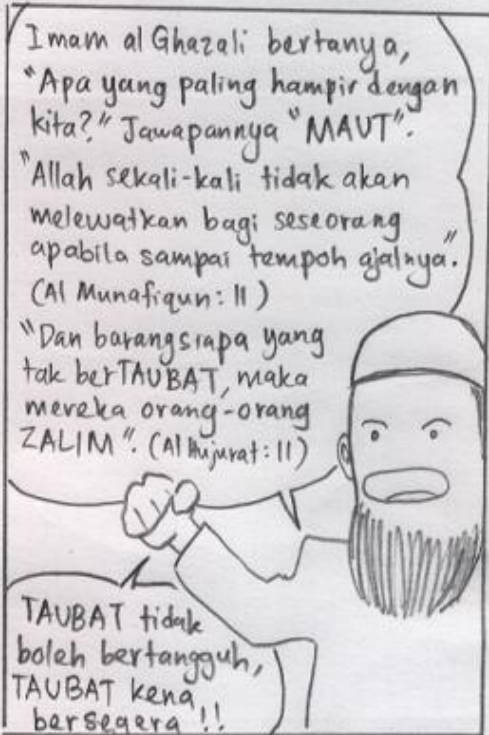 Imam al Ghazali bertanya,
"Apa yang paling hampir dengan
kita?" Jawapannya "MAUT".
"Allah sekali-kali tidak akan
melewatkan bagi seseorang
apabila sampai tempoh ajalnya."
(Al Munafiqun: 11)
"Dan barangsiapa yang
tak berTAUBAT, maka
mereka orang-orang
ZALIM". (Al Hujurat: 11)
TAUBAT tidak
boleh bertangguh,
TAUBAT kena
bersegera !!